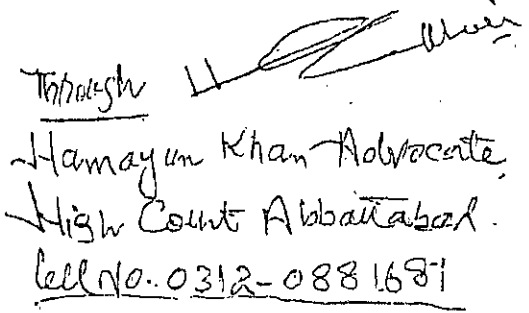 Through
Hamayun Khan Advocate,
High Court Abbattabad.
Cell No. 0312-0881687